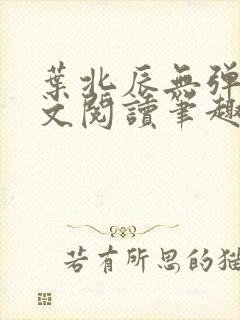 葉北辰無弹
文閱讀筆趣
若有所思的猫